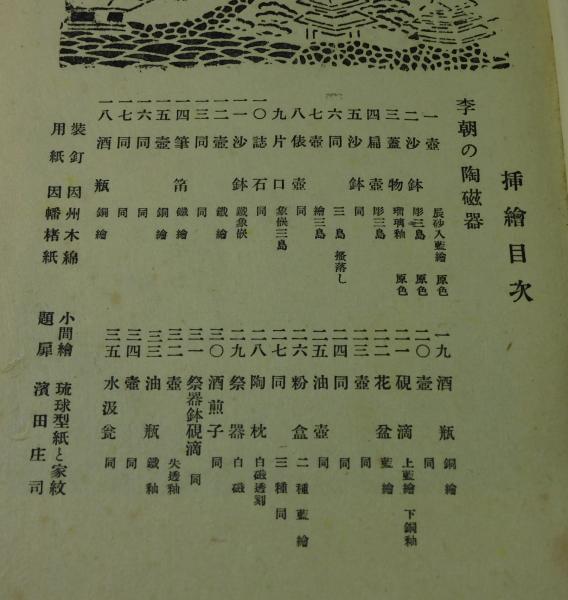 挿繪目次
李朝の陶磁器
一 壺 辰砂入藍繪 原色
二 沙鉢 彫三島 原色
三 蓋物 瑠璃釉 原色
四 扁壺 彫三島
五 沙鉢 同
六 同 三島 搔落し
七 壺 繪三島
八 俵壺 同
九 片口 象嵌三島
一〇 誌石 同
一一 沙鉢 鐵象嵌
一二 壺 鐵繪
一三 同 同
一四 筆筒 鐵繪
一五 壺 銅繪
一六 同 同
一七 同 同
一八 酒瓶 銅繪
一九 酒瓶 銅繪
二〇 壺 同
二一 硯滴 上藍繪 下銅釉
二二 花盆 藍繪
二三 壺 同
二四 同 同
二五 油壺 同
二六 粉盒 二種 藍繪
二七 同 三種 同
二八 陶枕 白磁透刻
二九 祭器 白磁
三〇 酒煎子 同
三一 祭器鉢硯滴 同
三二 壺 失透釉
三三 油瓶 鐵釉
三四 壺 同
三五 水汲瓮 同
裝釘 因州木綿
用紙 因幡楮紙
小間繪 琉球型紙と家紋
題扉 濱田庄司